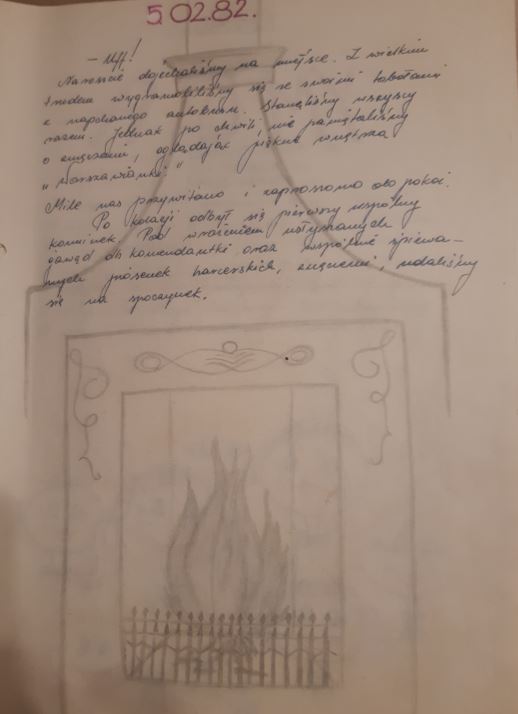 5.02.82.
– Uff!
Nareszcie dojechaliśmy na miejsce. Z wielkim
trudem wygramoliliśmy się ze swoimi tobołami
z napchanego autokaru. Stanęliśmy wszyscy
razem. Jednak po chwili, nie pamiętaliśmy
o zmęczeniu, oglądając piękne wnętrza
„Warszawianki."
Mile nas przywitano i zaproszono do pokoi.
Po kolacji odbył się pierwszy wspólny
kominek. Pod wrażeniem usłyszanych
gawęd dh komendantki oraz wspólnie śpiewa-
nych piosenek harcerskich, zmęczeni, udaliśmy
się na spoczynek.